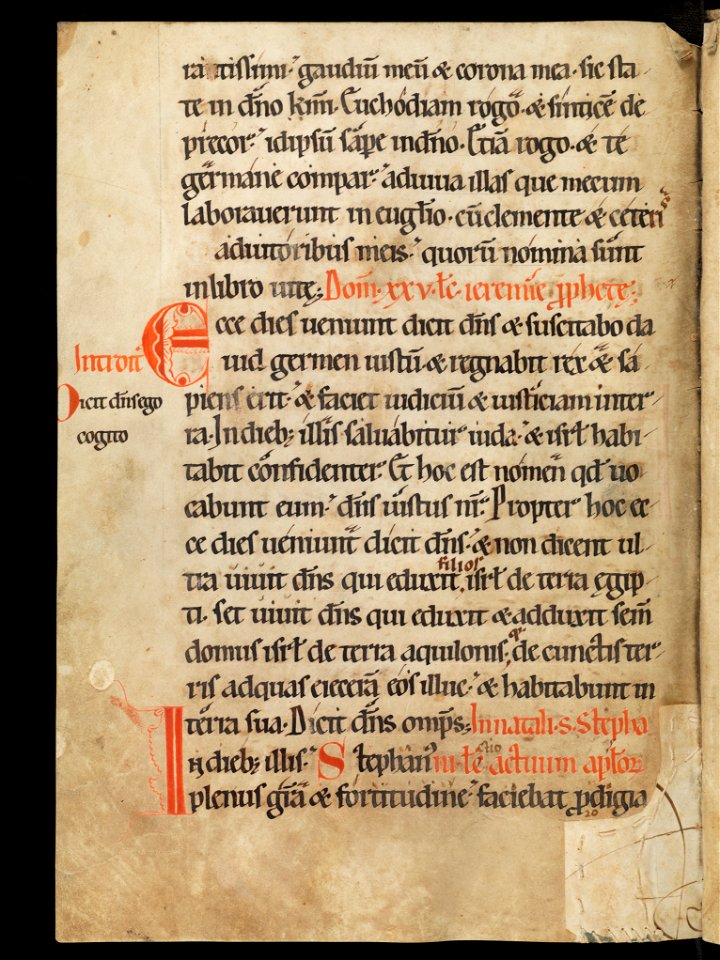 rantissimi. gaudiū meū & corona mea. sic sta
te in dn̄o km̄i. Euchodiam rogo. & sinticē de
precor. idipsū sapere in dn̄o. Etiā rogo. & te
germane compar. adiuua illas que mecum
laborauerunt in euglīo. cū clemente & ceteris
adiutoribus meis. quorū nomina sunt
in libro uitę; Dom̄. xxv. lc̄. ieremię ꝓphetę.
Ecce dies ueniunt dicit dn̄s & suscitabo da
uid germen iustū & regnabit rex & sa
piens erit. & faciet iudiciū & iusticiam in ter
ra. In dieb; illis saluabitur iuda. & isrł habi
tabit confidenter. Et hoc est nomen qd̄ uo
cabunt eum. dn̄s iustus nr̄. Propter hoc ec
ce dies ueniunt dicit dn̄s. & non dicent ul
tra uiuit dn̄s qui eduxit filios isrł de terra ęgip
ti. set uiuit dn̄s qui eduxit & adduxit sem̄
domus isrł de terra aquilonis, & de cunctis ter
ris ad quas eiecerā eos illuc. & habitabunt in
terra sua. Dicit dn̄s omp̄s; In natali. s. Stepha
In dieb; illis. Stephan᾽ ni. lectio actuum apłor
plenus gr̄a & fortitudine. faciebat ꝓdigia
Introit̄
Dicit dn̄s ego
cogito
20